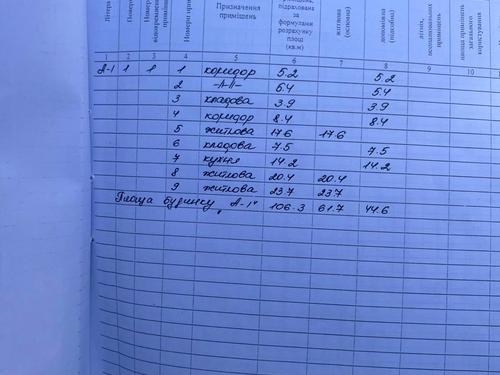 Літера
Номер
Номер
Номери
Призначення приміщень
підрахована за формулами розрахунку площ (кв.м)
житлова (основна)
допоміжна (підсобна)
літніх,
приміщень
площа приміщень загального користування
1 2 3 4 5 6 7 8 9 10
А-І 1 1 1 коридор 5.2 5.2
2 -//-//- 5.4 5.4
3 кладова 3.9 3.9
4 коридор 8.4 8.4
5 житлова 17.6 17.6
6 кладова 7.5 7.5
7 кухня 14.2 14.2
8 житлова 20.4 20.4
9 житлова 23.7 23.7
Площа будинку "А-І" 106.3 61.7 44.6